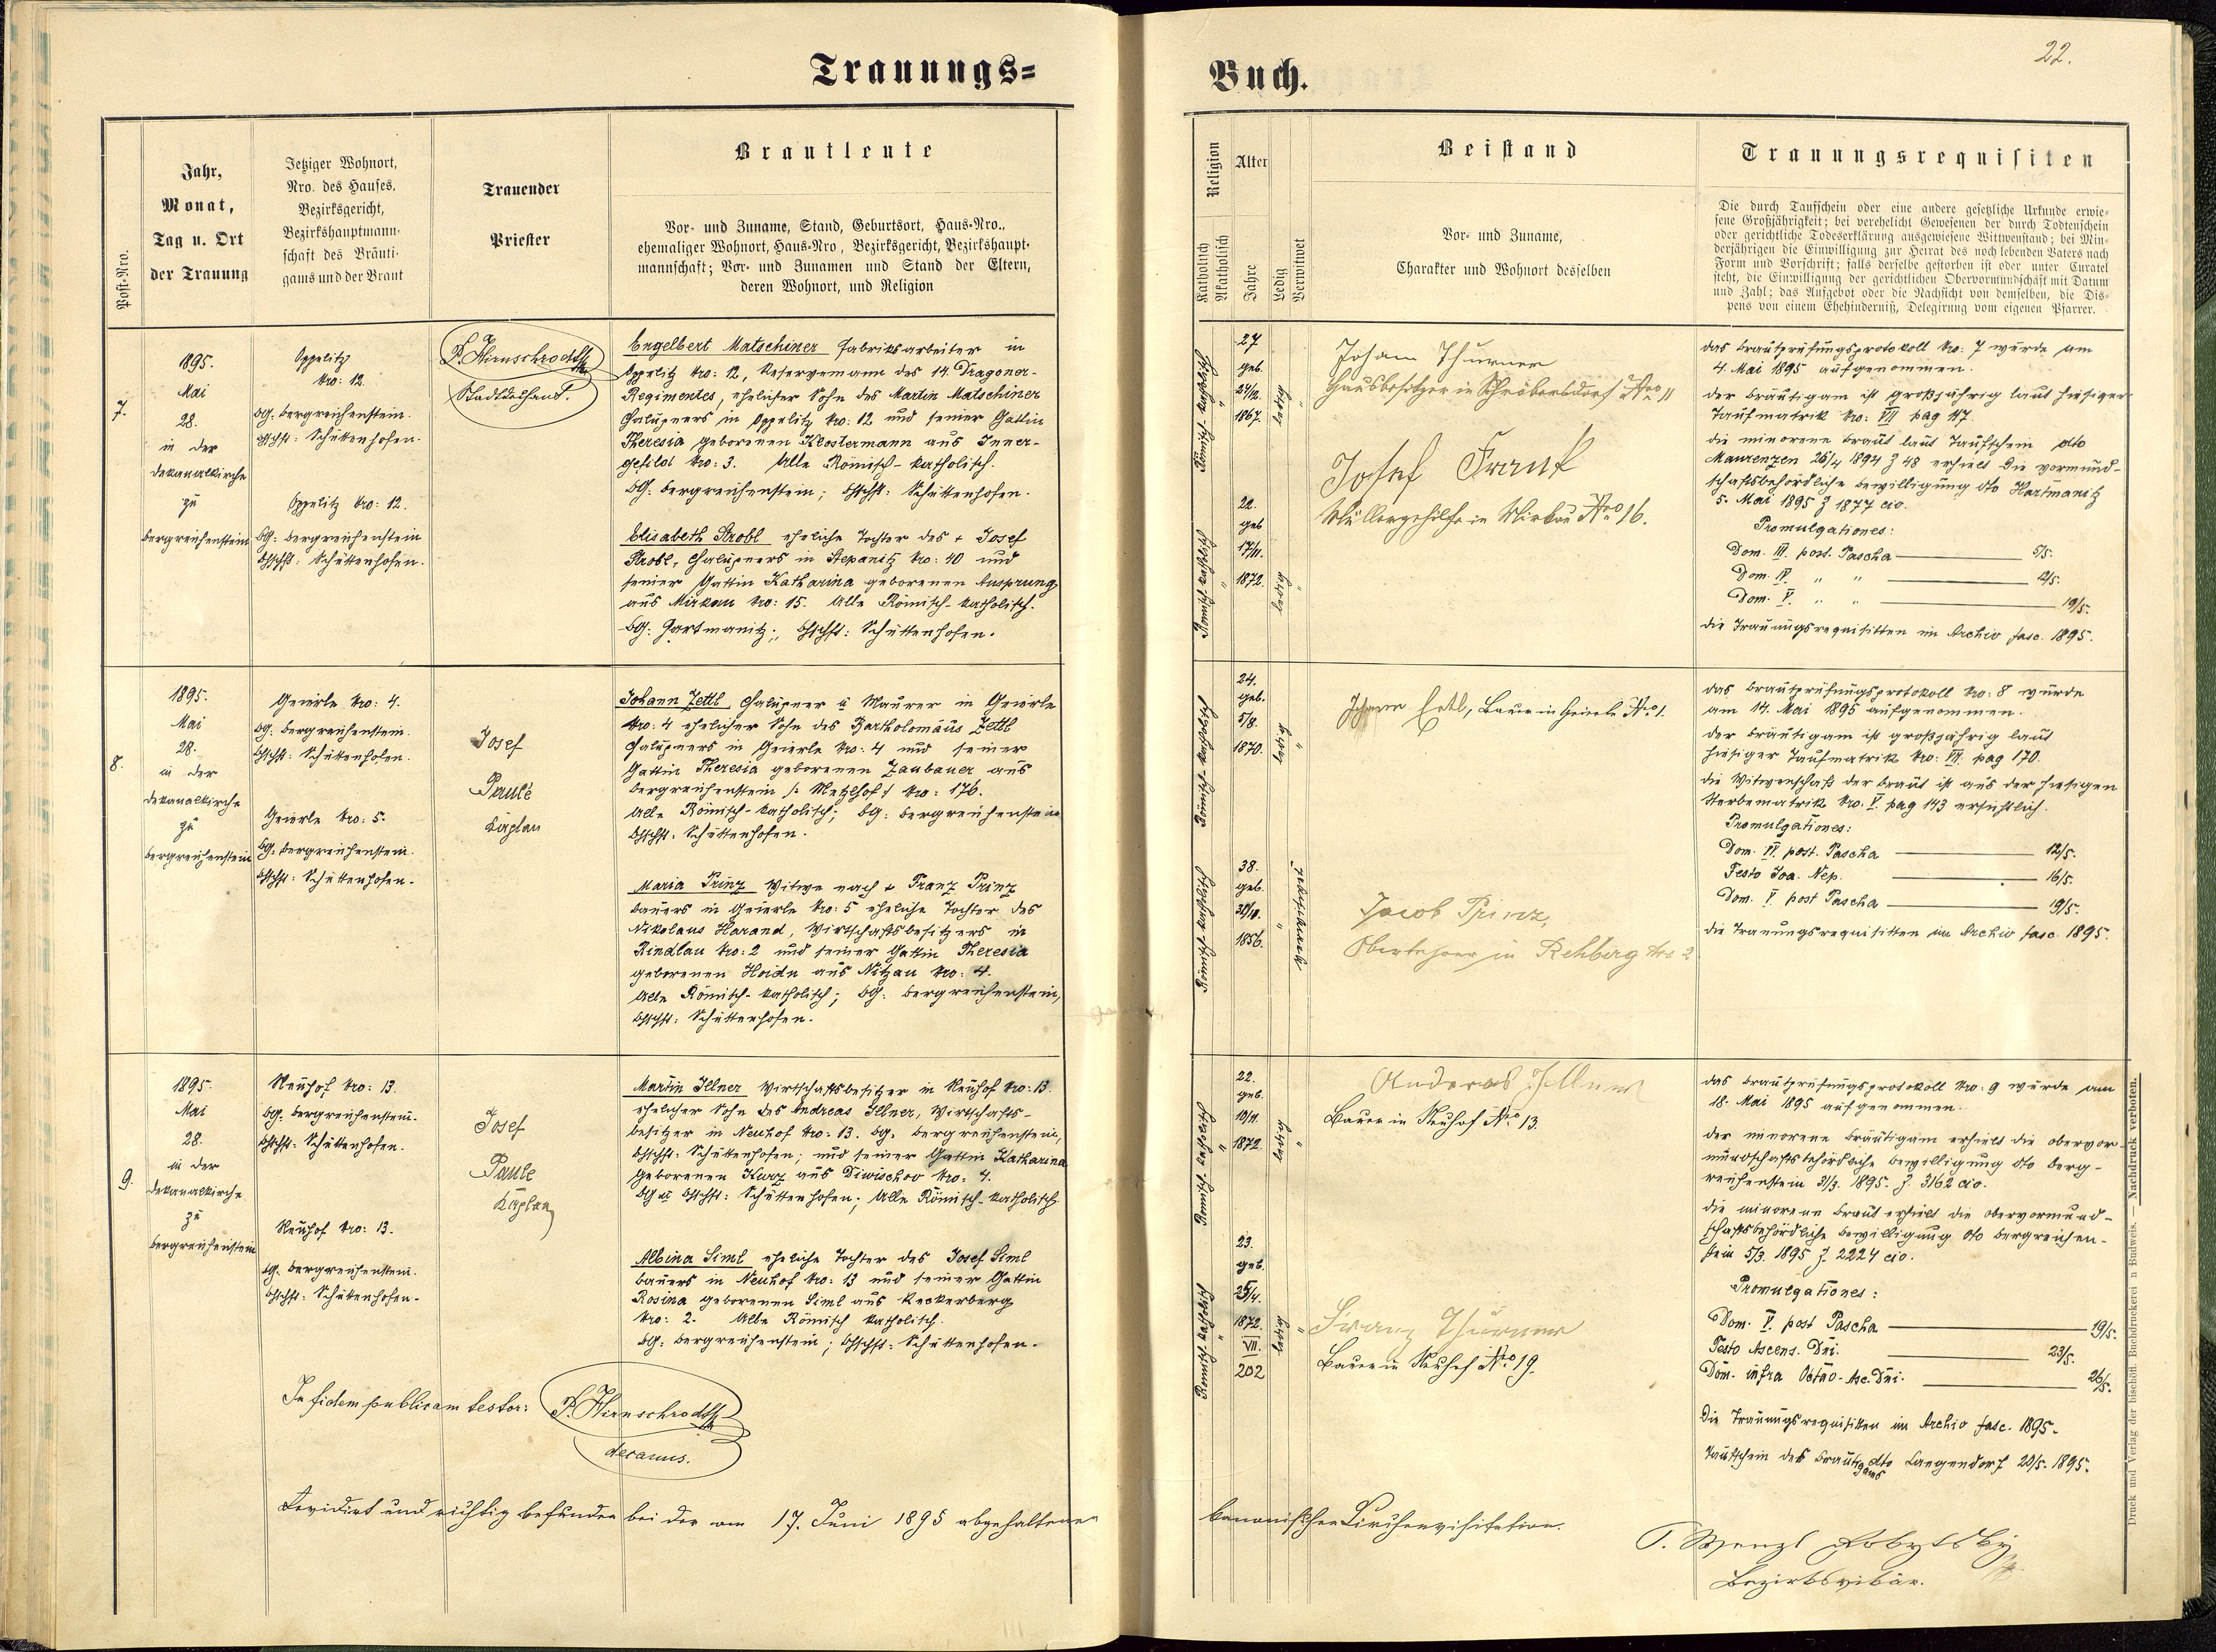 Trauungs=
Buch.
22.
Post-Nro.
Jahr,
Monat,
Tag u. Ort
der Trauung
Jetziger Wohnort,
Nro. des Hauses,
Bezirksgericht,
Bezirkshauptmann-
schaft des Bräuti-
gams und der Braut
Trauender
Priester
Brautleute
Vor- und Zuname, Stand, Geburtsort, Haus-Nro.,
ehemaliger Wohnort, Haus-Nro, Bezirksgericht, Bezirkshaupt-
mannschaft; Vor- und Zunamen und Stand der Eltern,
deren Wohnort, und Religion
Religion
Katholisch
Akatholisch
Alter
Jahre
Ledig
Verwitwet
Beistand
Vor- und Zuname,
Charakter und Wohnort desselben
Trauungsrequisiten
Die durch Taufschein oder eine andere gesetzliche Urkunde erwie-
sene Großjährigkeit; bei verehelicht Gewesenen der durch Todtenschein
oder gerichtliche Todeserklärung ausgewiesene Wittwenstand; bei Min-
derjährigen die Einwilligung zur Heirat des noch lebenden Vaters nach
Form und Vorschrift; falls derselbe gestorben ist oder unter Curatel
steht, die Einwilligung der gerichtlichen Obervormundschaft mit Datum
und Zahl; das Aufgebot oder die Nachsicht von demselben, die Dis-
pens von einem Ehehinderniß, Delegirung vom eigenen Pfarrer.
7.
1895.
Mai
28.
in der
Dekanalkirche
zu
Bergreichenstein
Oppelitz
Nro: 12.
BG. Bergreichenstein.
Bhschft: Schüttenhofen.
Oppelitz Nro: 12.
BG: Bergreichenstein
Bhschft: Schüttenhofen.
P. Hirnschrodt
Stadtdechant.
Engelbert Matschiner Fabriksarbeiter in
Oppelitz Nro: 12, Reservemann des 14. Dragoner-
Regimentes, ehelicher Sohn des Martin Matschiner
Chalupners in Oppelitz Nro: 12 und seiner Gattin
Theresia geborenen Klostermann aus Inner-
gefild Nro: 3. Alle Römisch-katholisch.
BG: Bergreichenstein; Bhschft: Schüttenhofen.
Elisabeth Strobl eheliche Tochter des + Josef
Strobl, Chalupners in Stepanitz Nro: 40 und
seiner Gattin Katharina geborenen Ansprung
aus Mirkau Nro: 15. Alle Römisch-katholisch.
BG: Hartmanitz; Bhschft: Schüttenhofen.
Römisch-katholisch
27
geb.
24/12.
1867.
ledig
Römisch-katholisch
22.
geb
17/11.
1872.
ledig
Johann Thurner
Hausbesitzer in Schröbersdorf Nro 11
Josef Frank
Müllergehilfe in Mirkau Nro 16.
Das Brautprüfungsprotokoll Nro: 7 wurde am
4. Mai 1895 aufgenommen.
Der Bräutigam ist großjährig laut hiesiger
Taufmatrik Nro: VII pag 117.
Die minorene Braut laut Taufschein dto
Maurenzen 26/4 1894 Z 48 erhielt die vormund-
schaftsbehördliche Bewilligung dto Hartmanitz
5. Mai 1895 Z 1877 civ.
Promulgationes:
Dom. III. post. Pascha 5/5.
Dom. IV. " " 12/5.
Dom. V. " " 19/5.
Die Trauungsrequisitten im Archiv fasc. 1895.
8.
1895.
Mai
28.
in der
Dekanalkirche
zu
Bergreichenstein
Geierle Nro: 4.
BG. Bergreichenstein.
Bhschft: Schüttenhofen.
Geierle Nro: 5.
BG. Bergreichenstein.
Bhschft: Schüttenhofen.
Josef
Paule
Kaplan
Johann Zettl Chalupner u Maurer in Geierle
Nro: 4 ehelicher Sohn des Bartholomäus Zettl
Chalupners in Geierle Nro: 4 und seiner
Gattin Theresia geborenen Zaubauer aus
Bergreichenstein /: Metzlhof :/ Nro: 176.
Alle Römisch-katholisch; BG: Bergreichenstein
Bhschft: Schüttenhofen.
Maria Prinz Witwe nach + Franz Prinz
Bauers in Geierle Nro: 5 eheliche Tochter des
Nikolaus Harand, Wirtschaftsbesitzers in
Rindlau Nro: 2 und seiner Gattin Theresia
geborenen Hoidn aus Nitzau Nro: 4.
Alle Römisch-katholisch; BG: Bergreichenstein,
Bhschft: Schüttenhofen.
Römisch-katholisch
24.
geb.
5/8.
1870.
ledig
Römisch-katholisch
38.
geb.
1856.
verwitwet
Johann Ertl, Bauer in Geierle Nro 1.
Jacob Prinz,
Oberlehrer in Rehberg Nro 2
Das Brautprüfungsprotokoll Nro: 8 wurde
am 14. Mai 1895 aufgenommen.
Der Bräutigam ist großjährig laut
hiesiger Taufmatrik Nro: VII. pag 170.
Die Witwenschaft der Braut ist aus der hiesigen
Sterbematrik Nro. V. pag 143 ersichtlich.
Promulgationes:
Dom. IV. post. Pascha 12/5.
Festo Joa. Nep. 16/5.
Dom. V. post Pascha 19/5.
Die Trauungsrequisitten im Archiv fasc. 1895.
9.
1895.
Mai
28.
in der
Dekanalkirche
zu
Bergreichenstein
Neuhof Nro: 13.
BG. Bergreichenstein.
Bhschft: Schüttenhofen.
Neuhof Nro: 13.
BG. Bergreichenstein.
Bhschft: Schüttenhofen.
Josef
Paule
Kaplan
Martin Illner Wirtschaftsbesitzer in Neuhof Nro: 13.
ehelicher Sohn des Andreas Illner, Wirtschafts-
besitzer in Neuhof Nro: 13. BG. Bergreichenstein,
Bhschft: Schüttenhofen; und seiner Gattin Katharina
geborenen Kurz aus Diwischov Nro: 4.
BG u Bhschft: Schüttenhofen; Alle Römisch-katholisch.
Albina Siml eheliche Tochter des Josef Siml
Bauers in Neuhof Nro: 13 und seiner Gattin
Rosina geborenen Siml aus Reckerberg
Nro: 2. Alle Römisch katholisch.
BG: Bergreichenstein; Bhschft: Schüttenhofen.
Römisch-katholisch
22.
geb.
19/11.
1872.
ledig
Römisch-katholisch
23.
geb.
25/4.
1872.
VII.
202
ledig
Andreas Illner
Bauer in Neuhof No 13.
Franz Thurner
Bauer in Neuhof Nro 19.
Das Brautprüfungsprotokoll Nro: 9 wurde am
18. Mai 1895 aufgenommen.
Der minorene Bräutigam erhielt die obervor-
mundschaftsbehördliche Bewilligung dto Berg-
reichenstein 31/3. 1895. Z. 3162 civ.
Die minorene Braut erhielt die obervormund-
schaftsbehördliche Bewilligung dto Bergreichen-
stein 5/3. 1895 Z. 2224 civ.
Promulgationes:
Dom. V. post Pascha 19/5.
Festo Ascens. Dni. 23/5.
Dom. infra Octav. Asc. Dni. 26/5.
Die Trauungsrequisitten im Archiv fasc. 1895.
Taufschein des Bräutigams dto Langendorf 20/5. 1895.
In fidem publicam testor: P. Hirnschrodt
decanus.
Revidirt und richtig befunden bei der am 17. Juni 1895 abgehaltenen
kanonischen Kirchenvisitation.
P. Wenzl
Bezirksvikär.
Druck und Verlag der bischöfl. Buchdruckerei in Budweis. — Nachdruck verboten.